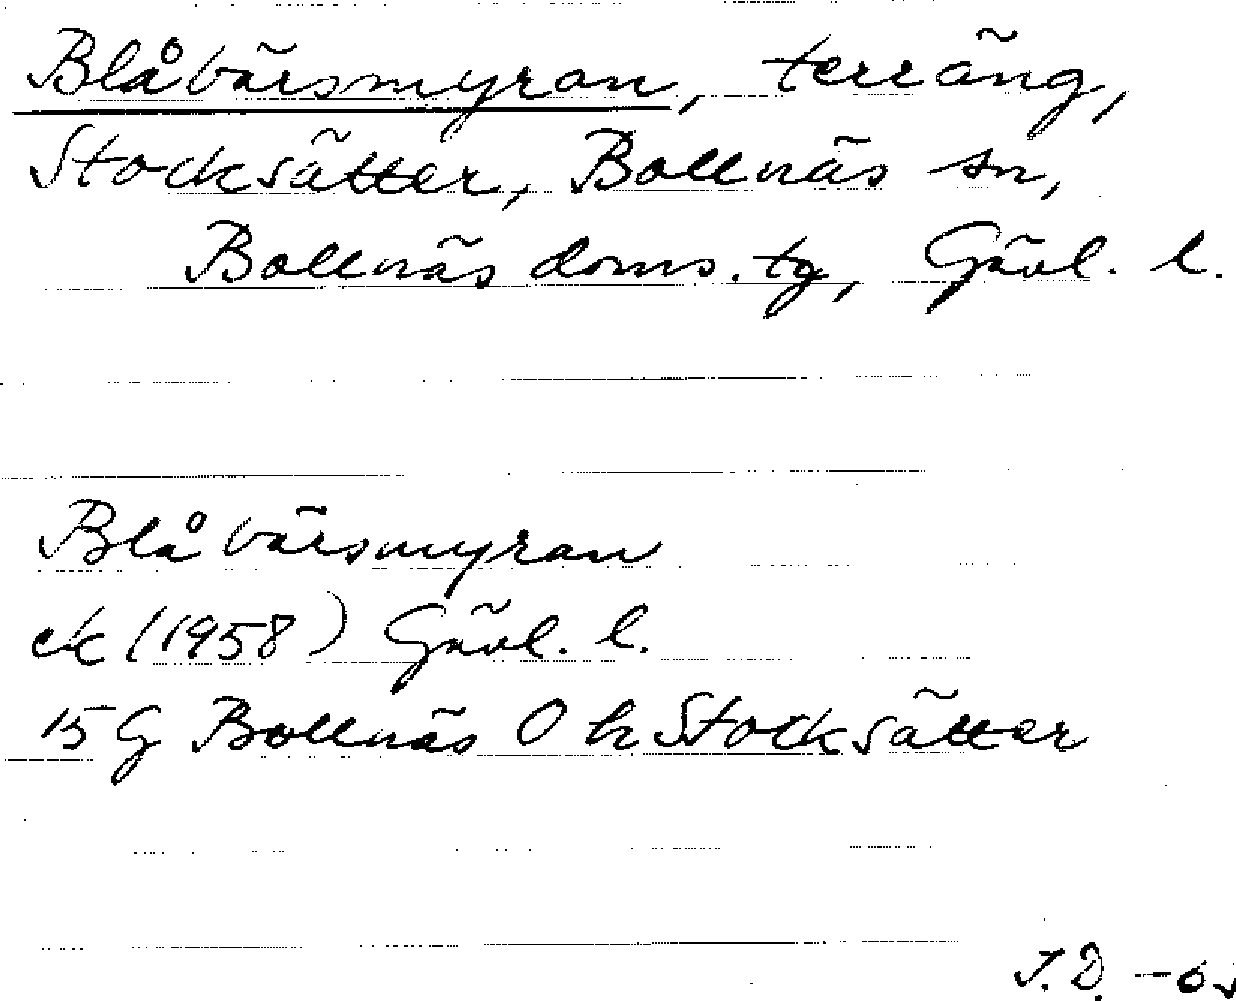 Blåbärsmyran, terräng,
Stocksätter, Bollnäs sn,
Bollnäs doms. tg, Gävl. l.
Blåbärsmyran
ek (1958) Gävl. l.
15 G Bollnäs O h Stocksätter
J.D.